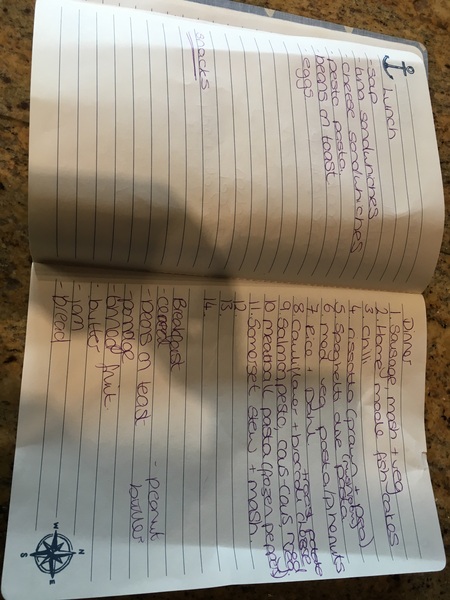 Lunch
- soup
- tuna sandwiches
- cheese sandwiches
- pesto pasta
- beans on toast
- eggs
snacks
Dinner
1 Sausage, mash + veg
2 Home made fish cakes
3 chilli
4 rissotto (prawn + pea)
5 spaghetti
6 med veg pasta/prawns
7 rice + Dahl
8 Cauliflower + broc
9 Salmon, pesto,
10 meatball pasta (frozen peppers)
11 Somerset stew + mash
12
13
14
Breakfast
- cereal
- beans on toast
- porridge
- tinned fruit
- butter
- jam
- bread
- peanut butter
N
E
W